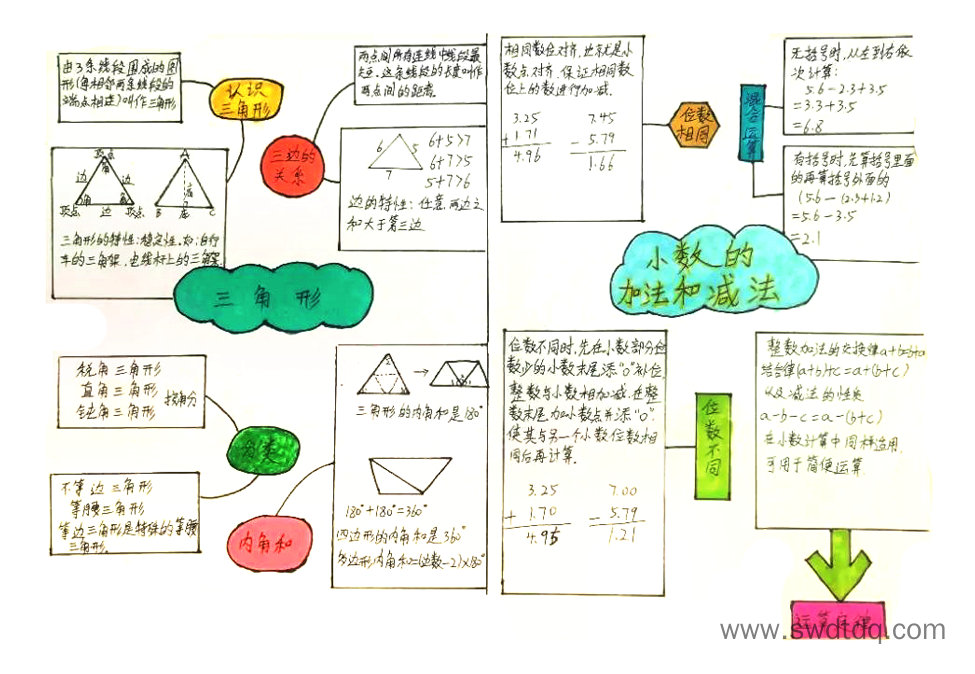 由3条线段围成的图
形(每相邻两条线段的
端点相连)叫作三角形
认识
三角形
两点间所有连线中线段最
短,这条线段的长度叫作
两点间的距离.
三边的
关系
6 5
7
6+5>7
6+7>5
5+7>6
边的特性:任意两边之
和大于第三边
顶点 A
角
边 边 高
角 角
顶点 边 顶点 B 底 C
三角形的特性:稳定性,如:自行
车的三角架,电线杆上的三角架
三角形
锐角三角形
直角三角形
钝角三角形
按角分
分类
不等边三角形
等腰三角形
等边三角形是特殊的等腰
三角形.
内角和
三角形的内角和是180°
180°+180°=360°
四边形的内角和是360°
多边形内角和=(边数-2)×180°
相同数位对齐,也就是小
数点对齐,保证相同数
位上的数进行加减.
3.25 7.45
+1.71 -5.79
4.96 1.66
位数
相同
混合运算
无括号时,从左到右依
次计算:
5.6-2.3+3.5
=3.3+3.5
=6.8
有括号时,先算括号里面
的再算括号外面的
(5.6-(2.3+1.2)
=5.6-3.5
=2.1
小数的
加法和减法
位数不同时,先在小数部分位
数少的小数末尾添“0”补位,
整数与小数相加减,在整
数末尾加小数点并添“0”,
使其与另一个小数位数相
同后再计算.
3.25 7.00
+1.70 -5.79
4.95 1.21
位数不同
整数加法的交换律a+b=b+a
结合律(a+b)+c=a+(b+c)
以及减法的性质
a-b-c=a-(b+c)
在小数计算中同样适用,
可用于简便运算
运算定律
www.swdtdq.com